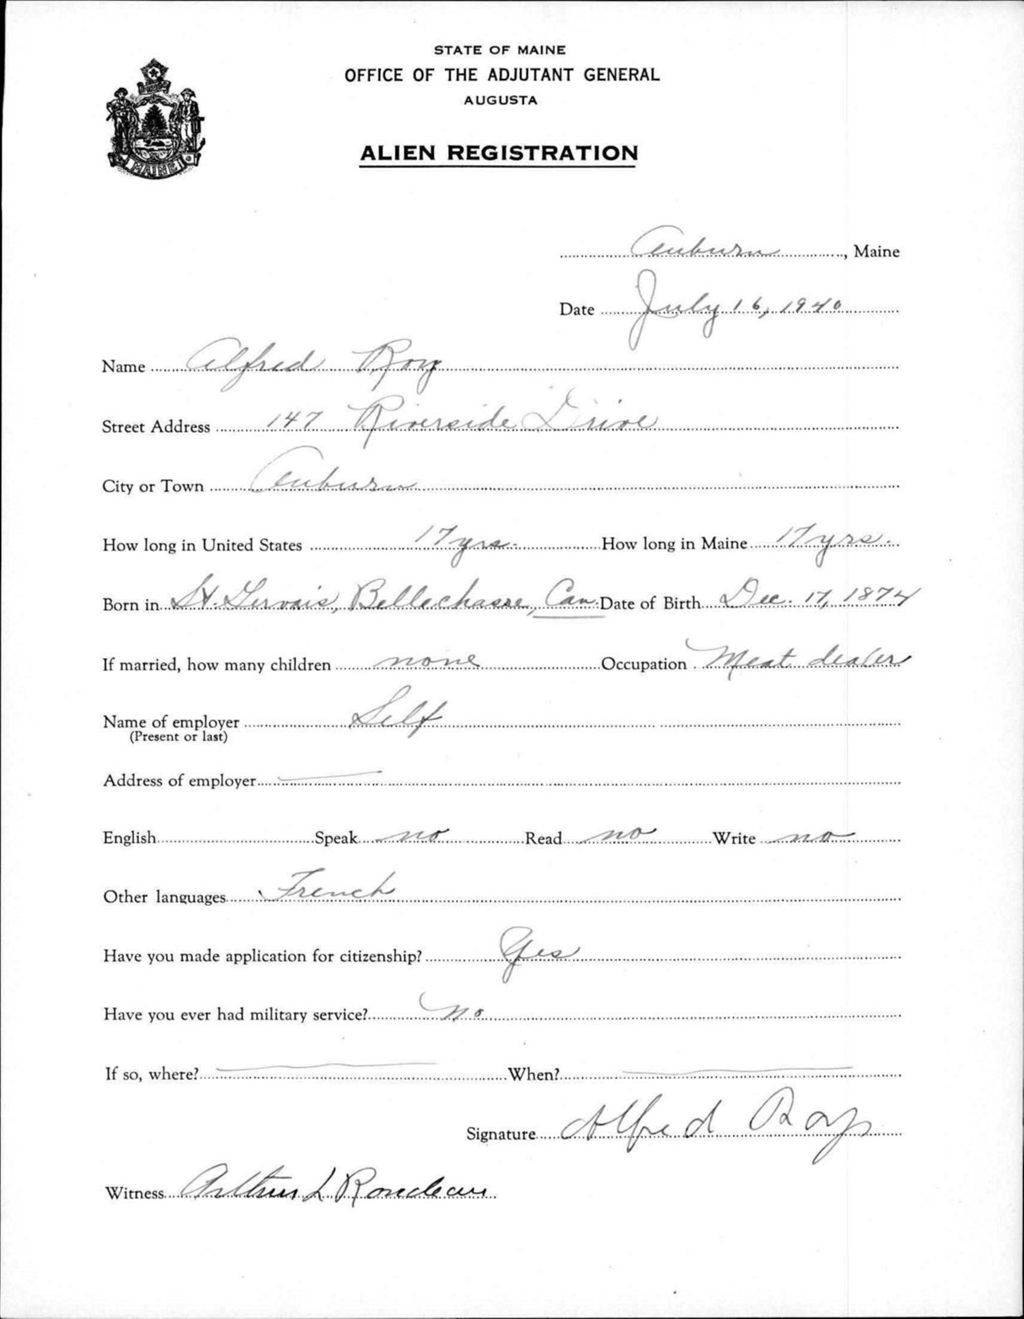 STATE OF MAINE
OFFICE OF THE ADJUTANT GENERAL
AUGUSTA
ALIEN REGISTRATION
MAINE
Auburn, Maine
Date July 16, 1940
Name Alfred Roy
Street Address 147 Riverside Drive
City or Town Auburn
How long in United States 17 yrs. How long in Maine 17 yrs.
Born in St. Gervais, Bellechasse, Can. Date of Birth Dec. 17, 1874
If married, how many children none Occupation Meat dealer
Name of employer Self
(Present or last)
Address of employer
English Speak no Read no Write no
Other languages French
Have you made application for citizenship? Yes
Have you ever had military service? No
If so, where? When?
Signature Alfred Roy
Witness Arthur L Rondeau